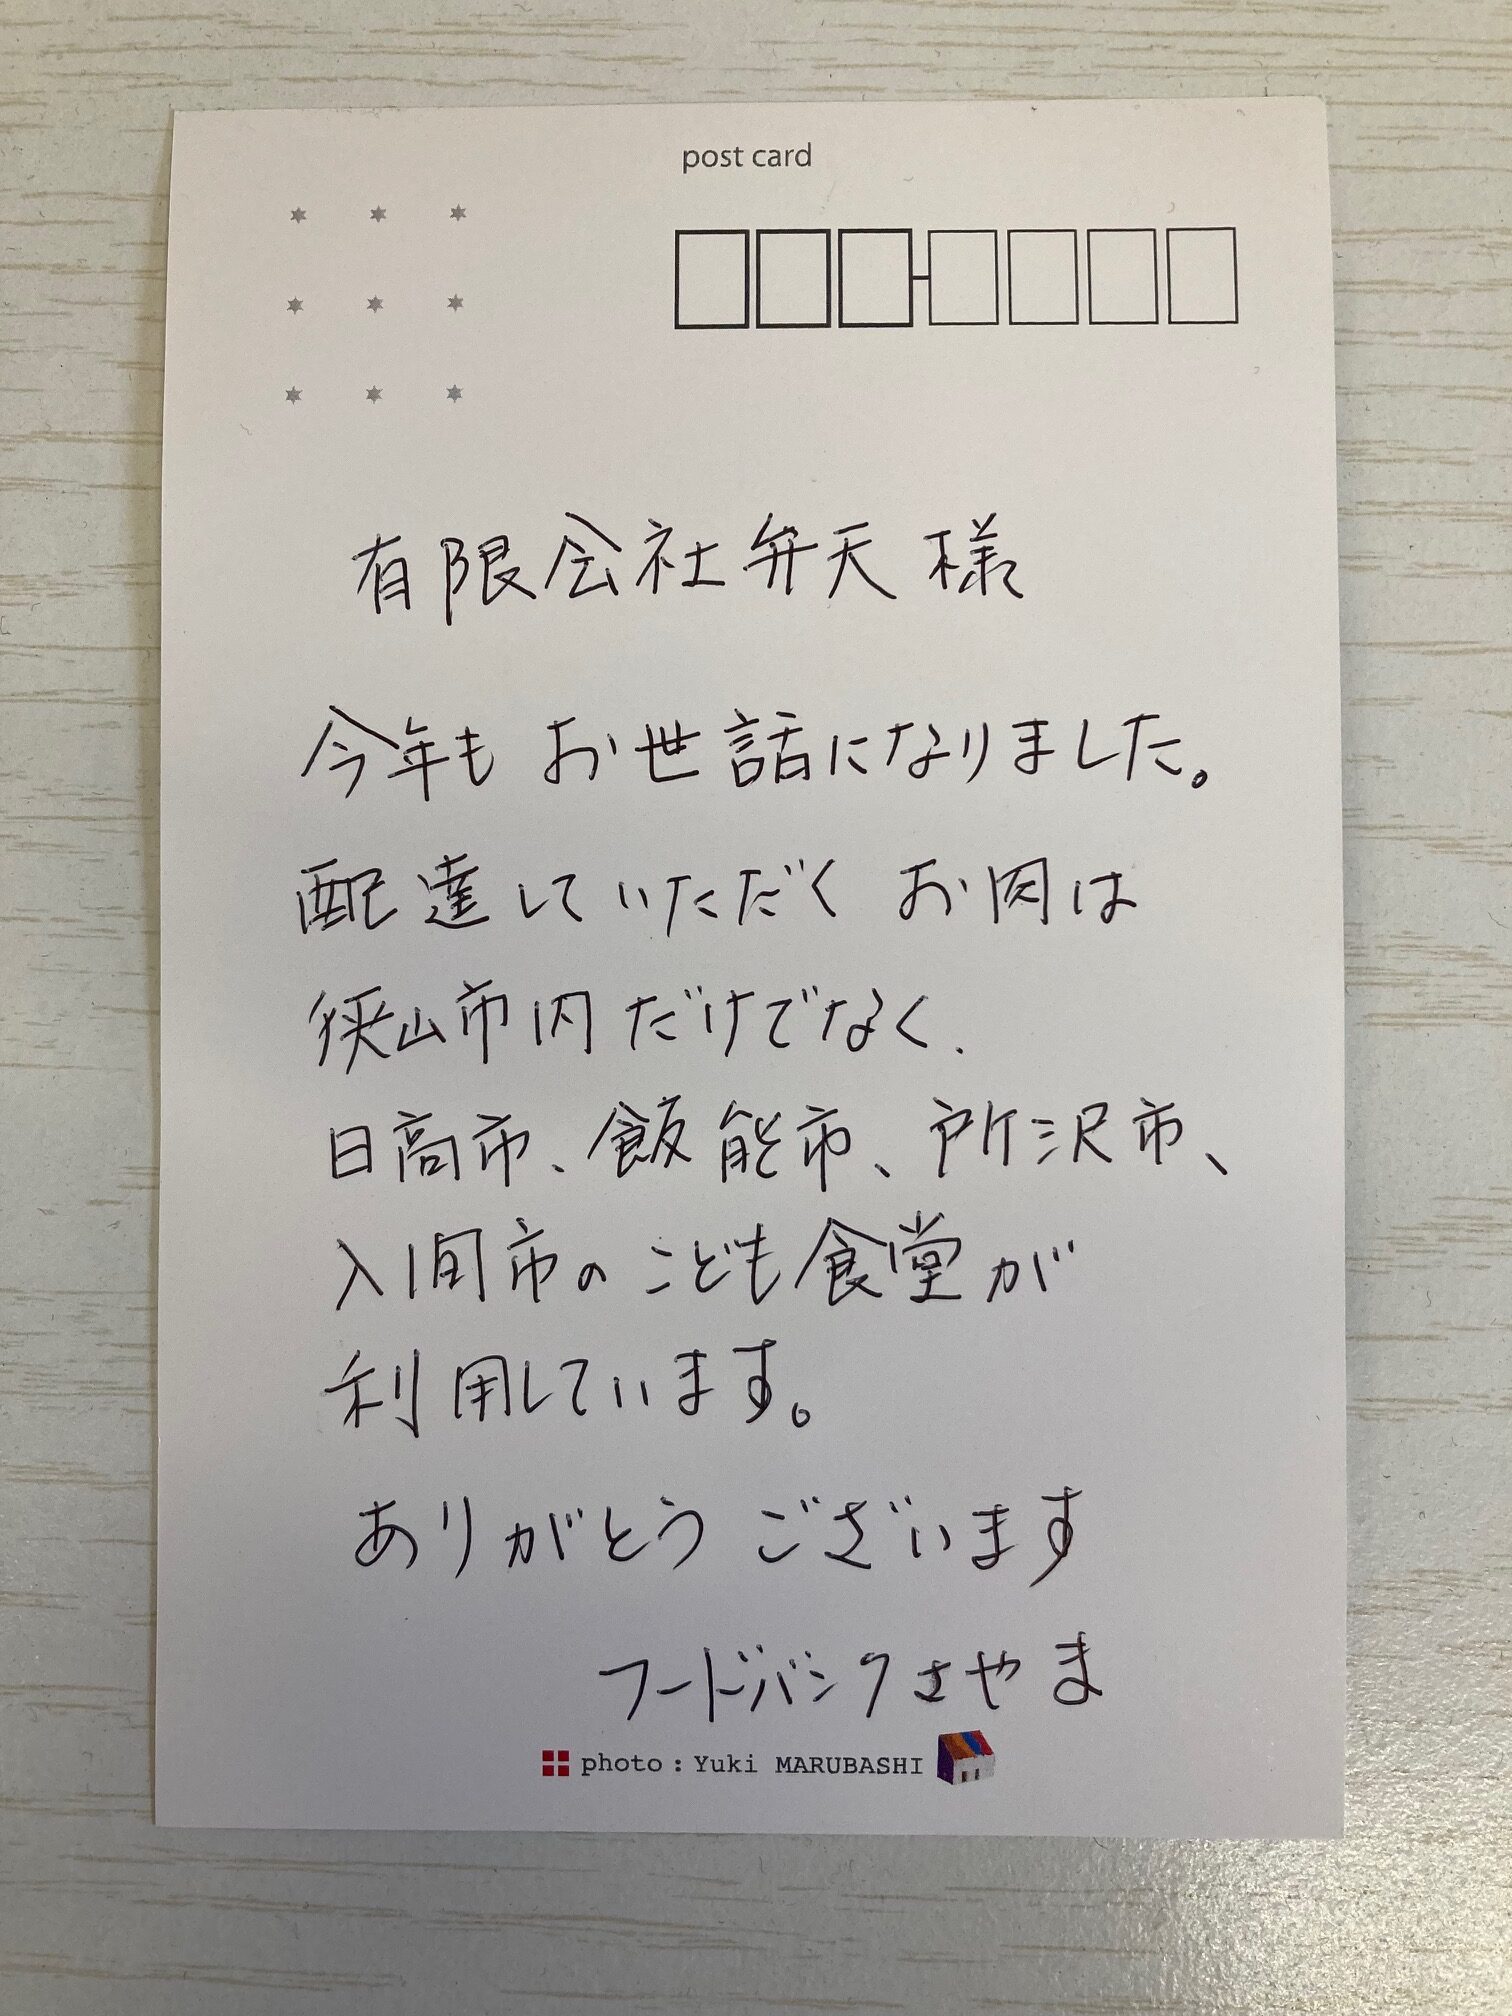 post card
有限会社弁天 様
今年も お世話になりました。
配達していただく お肉は
狭山市内だけでなく、
日高市、飯能市、所沢市、
入間市の こども食堂が
利用しています。
ありがとう ございます
フードバンクさやま
photo : Yuki MARUBASHI